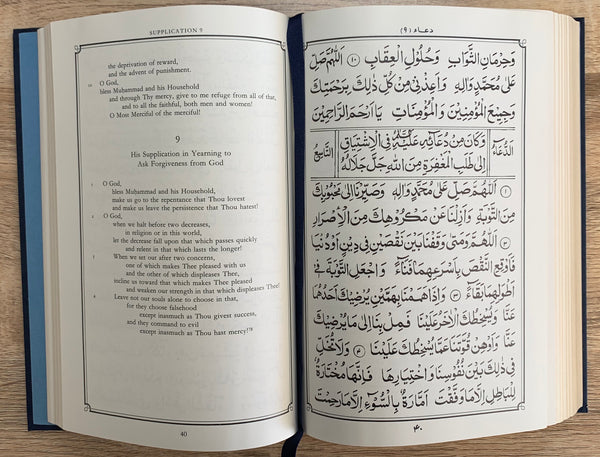 SUPPLICATION 9
the deprivation of reward,
and the advent of punishment.
10 O God,
bless Muḥammad and his Household
and through Thy mercy, give to me refuge from all of that,
and to all the faithful, both men and women!
O Most Merciful of the merciful!
9
His Supplication in Yearning to
Ask Forgiveness from God
1 O God,
bless Muḥammad and his Household,
make us go to the repentance that Thou lovest
and make us leave the persistence that Thou hatest!
2 O God,
when we halt before two decreases,
in religion or in this world,
let the decrease fall upon that which passes quickly
and relent in that which lasts the longest!
3 When we set our after two concerns,
one of which makes Thee pleased with us
and the other of which displeases Thee,
incline us toward that which makes Thee pleased with us
and weaken our strength in that which displeases Thee!
4 Leave not our souls alone to choose in that,
for they choose falsehood
except inasmuch as Thou givest success,
and they command to evil
except inasmuch as Thou hast mercy!⁷⁸
40
دعاء (۹)
وَحِرْمَانِ الثَّوَابِ وَحُلُولِ الْعِقَابِ ۝۱۰ اَللّٰهُمَّ صَلِّ
عَلٰى مُحَمَّدٍ وَاٰلِهِ وَاَعِذْنِي مِنْ كُلِّ ذٰلِكَ بِرَحْمَتِكَ
وَجَمِيعَ الْمُؤْمِنِينَ وَالْمُؤْمِنَاتِ يَا اَرْحَمَ الرَّاحِمِينَ
الدُّعَاءُ التَّاسِعُ
وَكَانَ مِنْ دُعَائِهِ عَلَيْهِ السَّلَامُ فِي الْاِشْتِيَاقِ
اِلٰى طَلَبِ الْمَغْفِرَةِ مِنَ اللهِ جَلَّ جَلَالُهُ
۝۱ اَللّٰهُمَّ صَلِّ عَلٰى مُحَمَّدٍ وَاٰلِهِ وَصَيِّرْنَا اِلٰى مَحْبُوبِكَ
مِنَ التَّوْبَةِ وَاَزِلْنَا عَنْ مَكْرُوهِكَ مِنَ الْاِصْرَارِ
۝۲ اَللّٰهُمَّ وَمَتٰى وَقَفْنَا بَيْنَ نَقْصَيْنِ فِي دِينٍ اَوْ دُنْيَا
فَاَوْقِعِ النَّقْصَ بِاَسْرَعِهِمَا فَنَاءً وَاجْعَلِ التَّوْبَةَ فِي
اَطْوَلِهِمَا بَقَاءً ۝۳ وَاِذَا هَمَمْنَا بِهَمَّيْنِ يُرْضِيكَ اَحَدُهُمَا
عَنَّا وَيُسْخِطُكَ الْاٰخَرُ عَلَيْنَا فَمِلْ بِنَا اِلٰى مَا يُرْضِيكَ
عَنَّا وَاَوْهِنْ قُوَّتَنَا عَمَّا يُسْخِطُكَ عَلَيْنَا ۝۴ وَلَا تُخَلِّ
فِي ذٰلِكَ بَيْنَ نُفُوسِنَا وَاخْتِيَارِهَا فَاِنَّهَا مُخْتَارَةٌ
لِلْبَاطِلِ اِلَّا مَا وَفَّقْتَ اَمَّارَةٌ بِالسُّوْءِ اِلَّا مَا رَحِمْتَ
۴۰